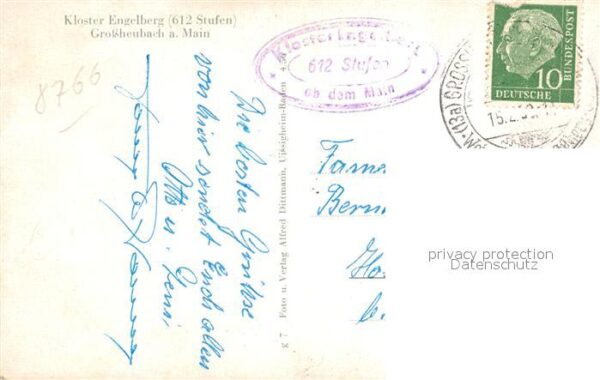 Kloster Engelberg (612 Stufen)
Großheubach a. Main
8766
Kloster Engelberg
612 Stufen
ob dem Main
10
DEUTSCHE
BUNDESPOST
(13a) GROSS
15.2.
Die besten Grüße
von hier sendet Euch allen
Otto u.
g 7 Foto u. Verlag Alfred Dittmann, Uissigheim-Baden 4.50
Fame
Bern
Ho
privacy protection
Datenschutz